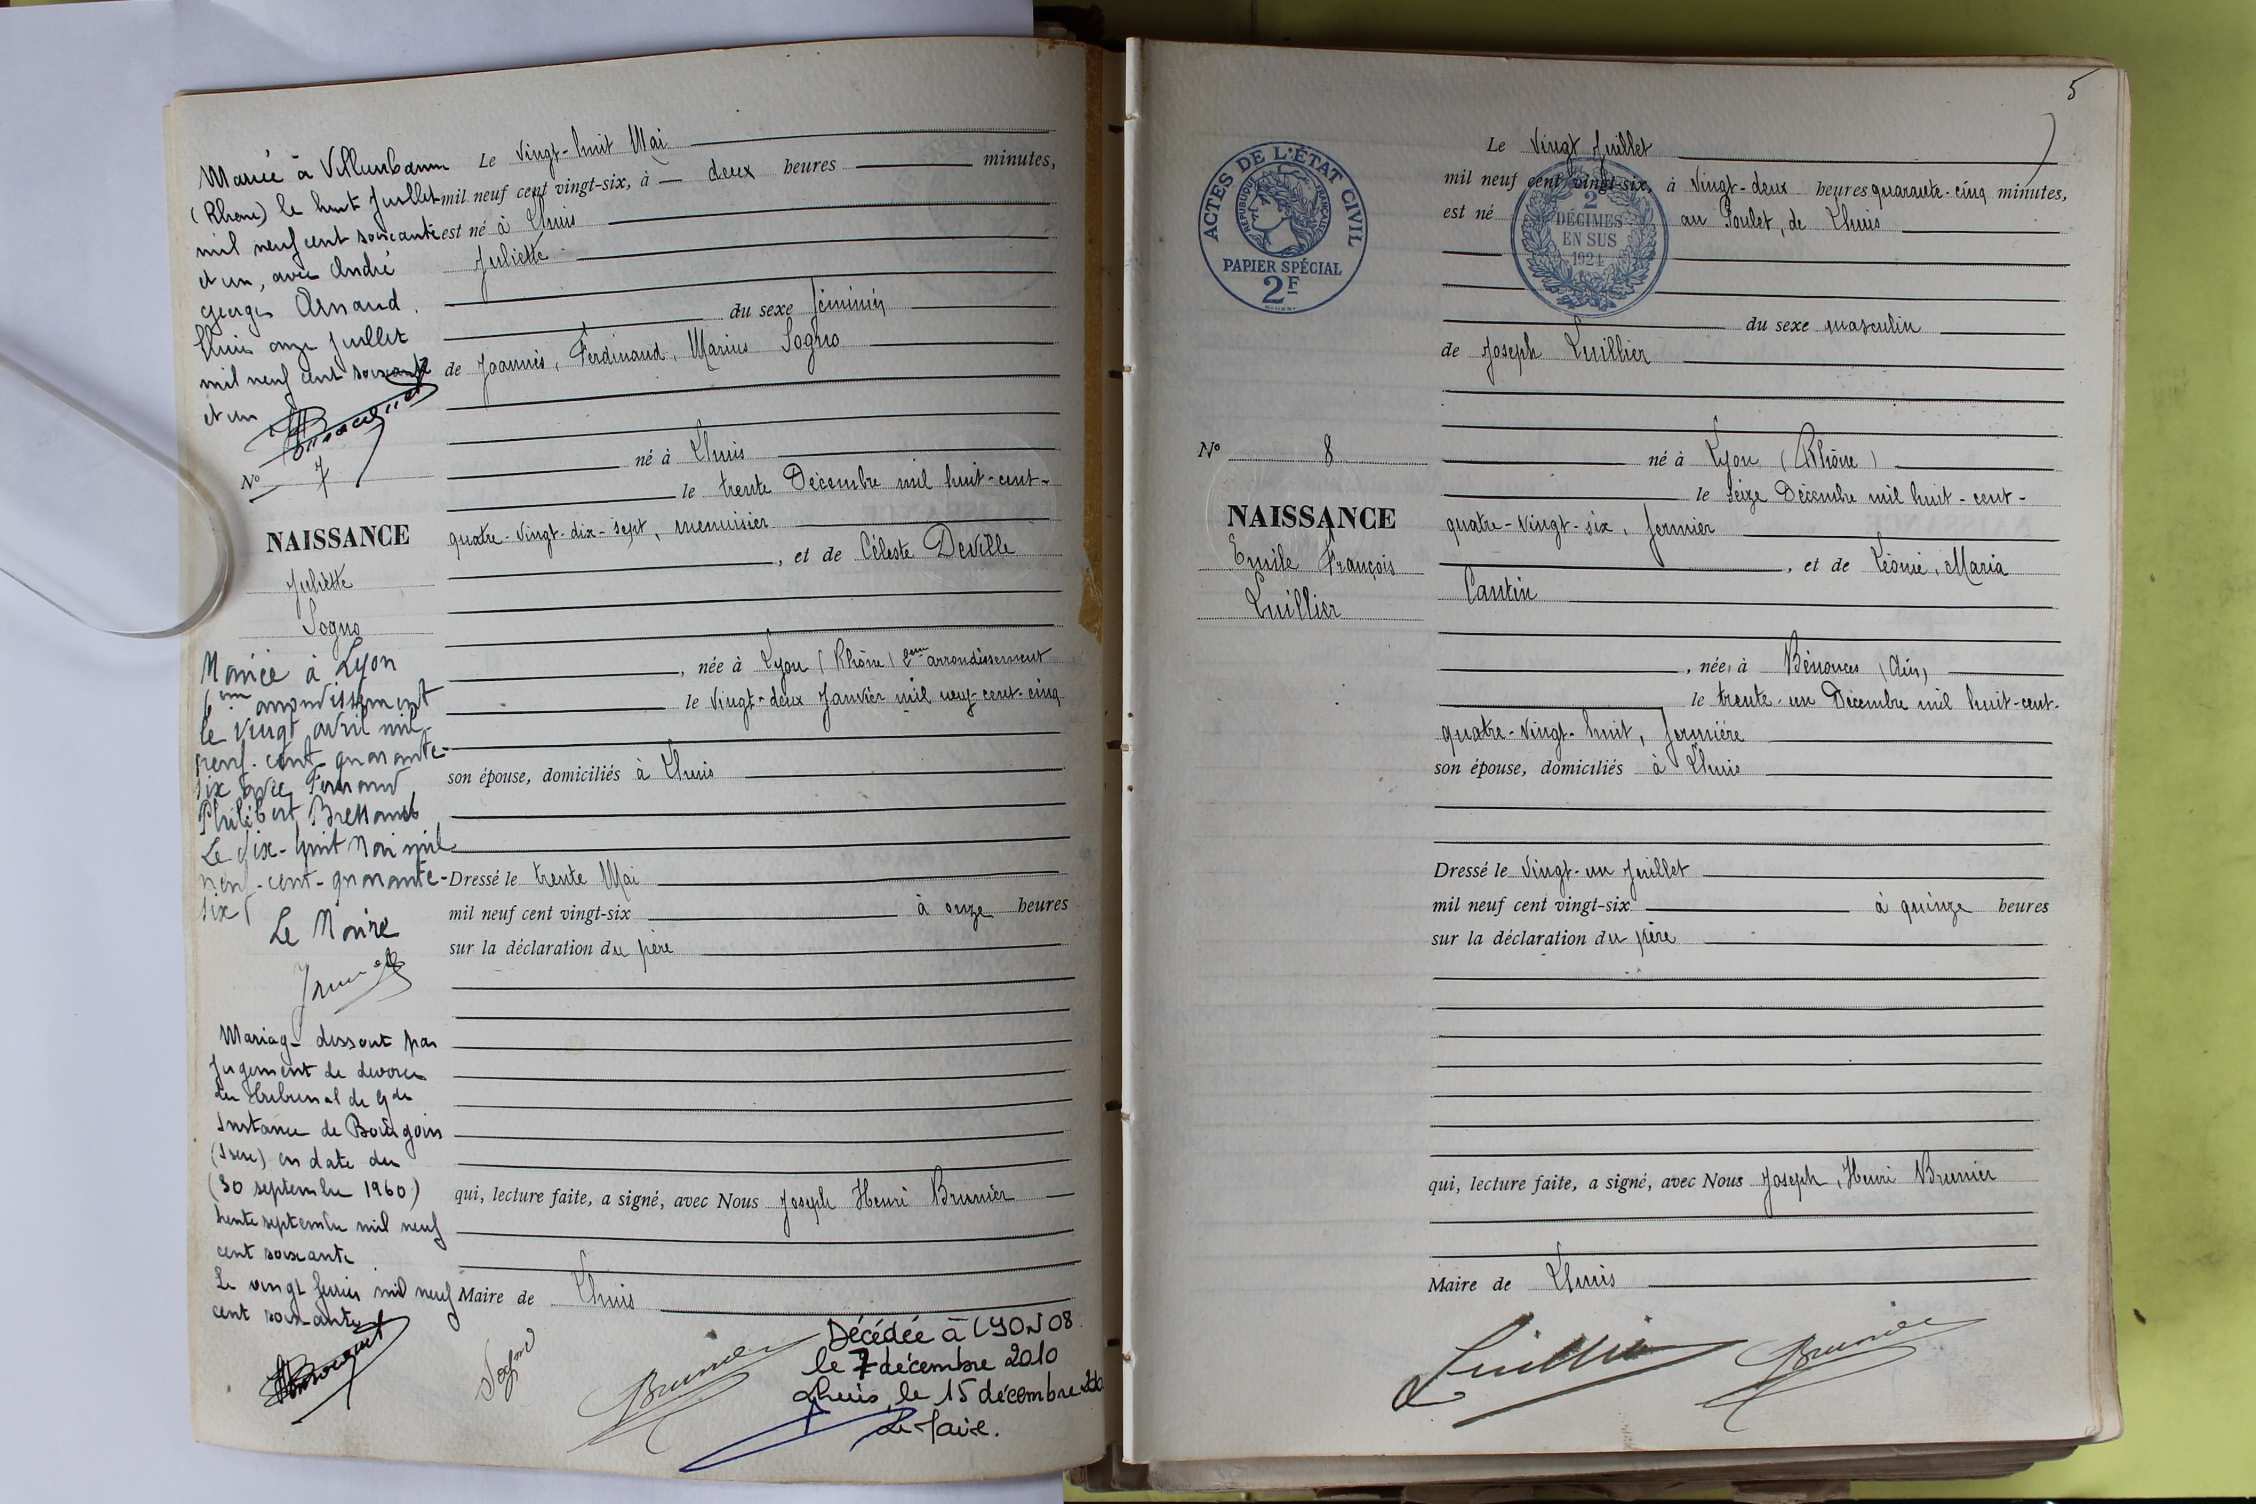 Mariée à Villeurbanne
(Rhône) le huit Juillet
mil neuf cent soixante
et un, avec André
Georges Arnaud.
Lhuis onze Juillet
mil neuf cent soixante
et un
N° 7
NAISSANCE
Juliette
Sogno
Mariée à Lyon
6ème arrondissement
le vingt avril mil
neuf-cent-quarante-
six avec Fernand
Philibert
Le dix-huit Mai mil
neuf-cent-quarante-
six
Le Maire
Mariage dissout par
Jugement de divorce
du tribunal de Gde
Instance de Bourgoin
(Isère) en date du
(30 septembre 1960)
trente septembre mil neuf
cent soixante
Le vingt février mil neuf
cent soixante
Le vingt-huit Mai
mil neuf cent vingt-six, à deux heures minutes,
est né à Lhuis
Juliette
du sexe féminin
de Joannès, Ferdinand, Marius Sogno
né à Lhuis
le trente Décembre mil huit-cent-
quatre-vingt-dix-sept, menuisier
, et de Céleste Deville
, née à Lyon (Rhône) 2ème arrondissement
le vingt-deux Janvier mil neuf-cent-cinq
son épouse, domiciliés à Lhuis
Dressé le trente Mai
mil neuf cent vingt-six à onze heures
sur la déclaration du père
qui, lecture faite, a signé, avec Nous Joseph Henri Brunier
Maire de Lhuis
Sogno
Brunier
Décédée à LYON 08
le 7 décembre 2010
Lhuis, le 15 décembre 2010
Le Maire.
5
ACTES DE L'ÉTAT CIVIL
RÉPUBLIQUE FRANÇAISE
PAPIER SPÉCIAL
2F
2
DÉCIMES
EN SUS
1924
N° 8
NAISSANCE
Emile François
Luillier
Le vingt Juillet
mil neuf cent vingt-six, à vingt-deux heures quarante-cinq minutes,
est né au Poulet, de Lhuis
du sexe masculin
de Joseph Luillier
né à Lyon (Rhône)
le seize Décembre mil huit-cent-
quatre-vingt-six, fermier
, et de Léonie, Maria
Cantin
, née, à Bénonces (Ain)
le trente-un Décembre mil huit-cent-
quatre-vingt-huit, fermière
son épouse, domiciliés à Lhuis
Dressé le vingt-un Juillet
mil neuf cent vingt-six à quinze heures
sur la déclaration du père
qui, lecture faite, a signé, avec Nous Joseph, Henri Brunier
Maire de Lhuis
Luillier
Brunier